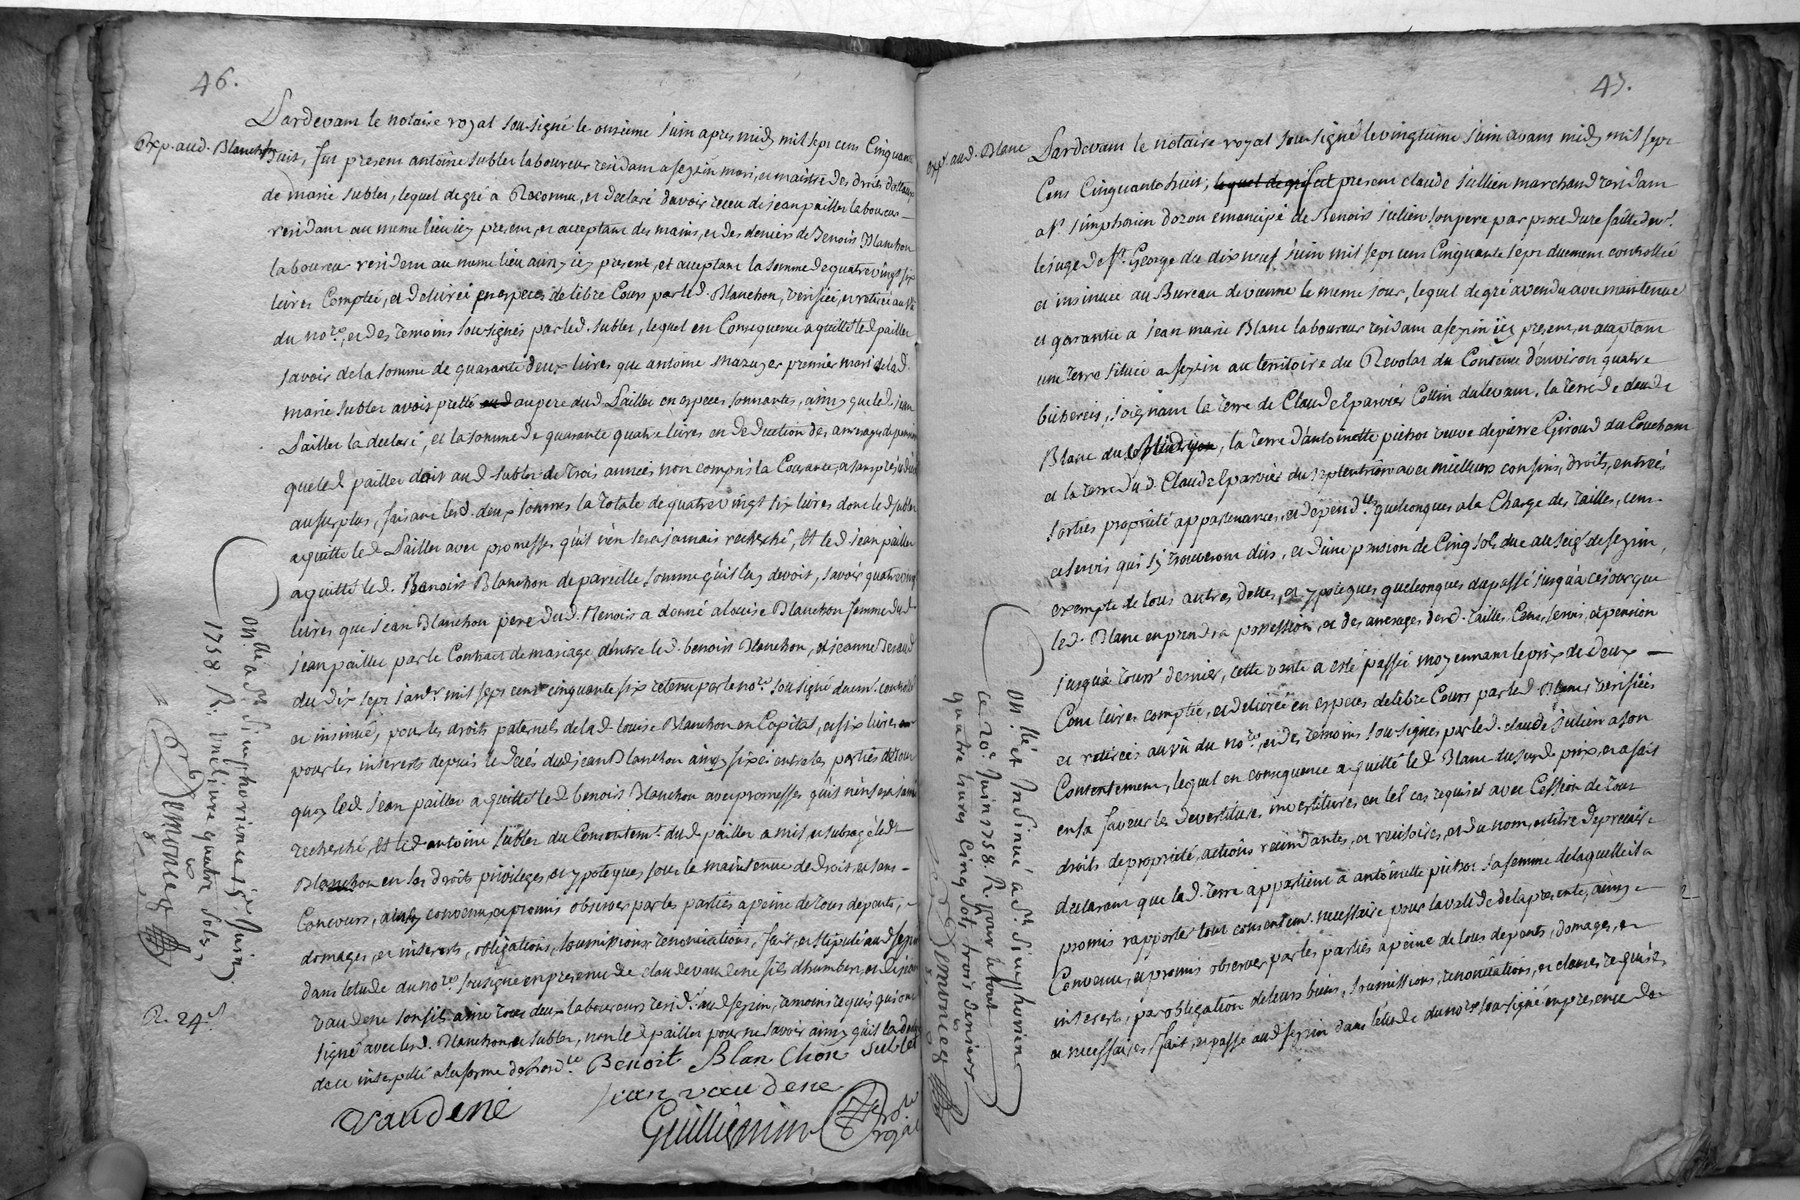 46.
Exp. aud. Blanchon
Pardevant le notaire royal sousigné le onsieme juin apres midy mil sept cens Cinquante
huit, fut present antoine sublet laboureur residant a seyzin mari, et maistre des droits dottaux
de marie sublet, lequel de gré a Reconnu, et declaré d'avoir receu de jean paillet laboureur
residant au meme lieu icy present, et acceptant des mains, et des deniers de Benois Blanchon
laboureur resident au meme lieu aussy icy present, et acceptant la somme de quatre vingt six
livres Comptée, et delivrée en especes de libre Cours par led. Blanchon, verifiée, et retirée au vû
du no.re, et des temoins sousignés par led. sublet, lequel en Consequence a quitté led. paillet
savoir de la somme de quarante deux livres que antoine mazuyer premier mari de lad.
marie sublet avoit pretté au pere dud. Paillet en especes sonnantes, ainsy que led. jean
Paillet la declaré, et la somme de quarante quatre livres en deduction des arrerages de pension
que led. paillet doit aud. sublet de trois années non compris la Courante, et sans prejudice
au surplus, faisant lesd. deux sommes la totale de quatre vingt six livres dont led. sublet
a quitté led. Paillet avec promesses qu'il n'en sera jamais recherché, Et led. jean paillet
a quitté led. Benoist Blanchon de pareille somme qu'il luy devoit, savoir quatre vingt
livres que jean Blanchon pere dud. Benois a donné a louise Blanchon femme dud.
jean paillet par le Contract de mariage d'entre led. benois Blanchon, et jeanne
du dix sept janv.r mil sept cens cinquante six retenu par le no.re sousigné duem.t controllé
et insinué, pour les droits paternels de lad. louise Blanchon en Capital, et six livres
pour les interests depuis le decés dud. jean Blanchon ainsy fixés entre les parties de tout
quoy led. jean paillet a quitté led. benois Blanchon avec promesses qu'il n'en sera jamais
recherché, Et led. antoine sublet du Consentem.t dud. paillet a mis et subrogé led.
Blanchon en ses droits privileges, et ypoteques sous le maintenue de droit, et sans
Concours, ainsy convenu, et promis observer par les parties a peine de tous depents,
domages, et interests, obligations, soumissions, renonciations, fait, et stipulé aud. seyzin
dans l'etude du no.re sousigné en presence de claude vaudene fils d'humbert, et de jean
vaudene son fils ainé tous deux laboureurs resid.s aud. seyzin, temoins requis qui ont
signé avec lesd. Blanchon, et sublet, non led. paillet pour ne savoir ainsy qu'il la declaré
de ce interpellé a la forme de l'ord.ce Benoit Blanchon Sublet
vaudene jean vaudene
Guilliermin no.re royal
Con.llé a S.t Simphorien ce juin
1758 R. une livre quatre sols
Demoncez
R. 24 s
47.
Exp. aud. Blanc
Pardevant le notaire royal sousigné le vingtieme juin avant midy mil sept
Cens Cinquante huit, fut present claude jullien marchand residant
a S.t simphorien d'ozon emancipé de Benois julien son pere par procedure faitte dev.t
le juge de S.t George du dix neuf juin mil sept cens Cinquante sept duement controllée
et insinuée au Bureau de vienne le meme jour, lequel de gré a vendu avec maintenue
et garantie a jean marie Blanc laboureur residant a seyzin icy present, et acceptant
une terre située a seyzin au territoire du Revolat du Contenu d'environ quatre
bicherées, joignant la terre de Claude Eparvier Collin du levant, la terre de claude
Blanc du, la terre d'antoinette pichot veuve de pierre Giroud du Couchant
et la terre dud. Claude Eparvier du septentrion avec meilleurs confins, droits, entrées
sorties proprieté appartenances, et depend.ces quelconques a la Charge des tailles, cens
et servis qui s'y trouveront dûs, et d'une pension de Cinq sols due au seig.r de seyzin,
exempte de tous autres dettes, et ypoteques quelconques du passé jusqu'a ce jour que
led. Blanc en prendra possession, et des arrerages desd. tailles, Cens, servis, et pension
jusqu'a toux dernier, cette vente a esté passée moyennant le prix de deux
Cent livres comptée, et delivrée en especes de libre Cours par led. Blanc, verifiées
et retirées au vû du no.re, et des temoins sousignés par led. claude julien a son
Contentement, lequel en consequence a quitté led. Blanc du susd. prix, et a fait
en sa faveur les devestiture, investitures en tel cas requises avec Cession de tous
droits de proprieté, actions rescindantes, et rescisoires, et du nom, et titre de precaire
declarant que lad. terre appartient a antoinette pichot sa femme de laquelle il a
promis rapporter tout consentem.t necessaire pour la validé de la presente, ainsy
Convenu, et promis observer par les parties a peine de tous depents, domages, et
interests, par obligation de leurs biens, soumissions, renonciations, et clauses requises
et necessaires, fait, et passé aud. seyzin dans l'etude du no.re sousigné en presence de
Con.llé et Insinué a S.t Simphorien
ce 20e Juin 1758. R. pour le tout
quatre livres cinq sols trois deniers
Demoncez